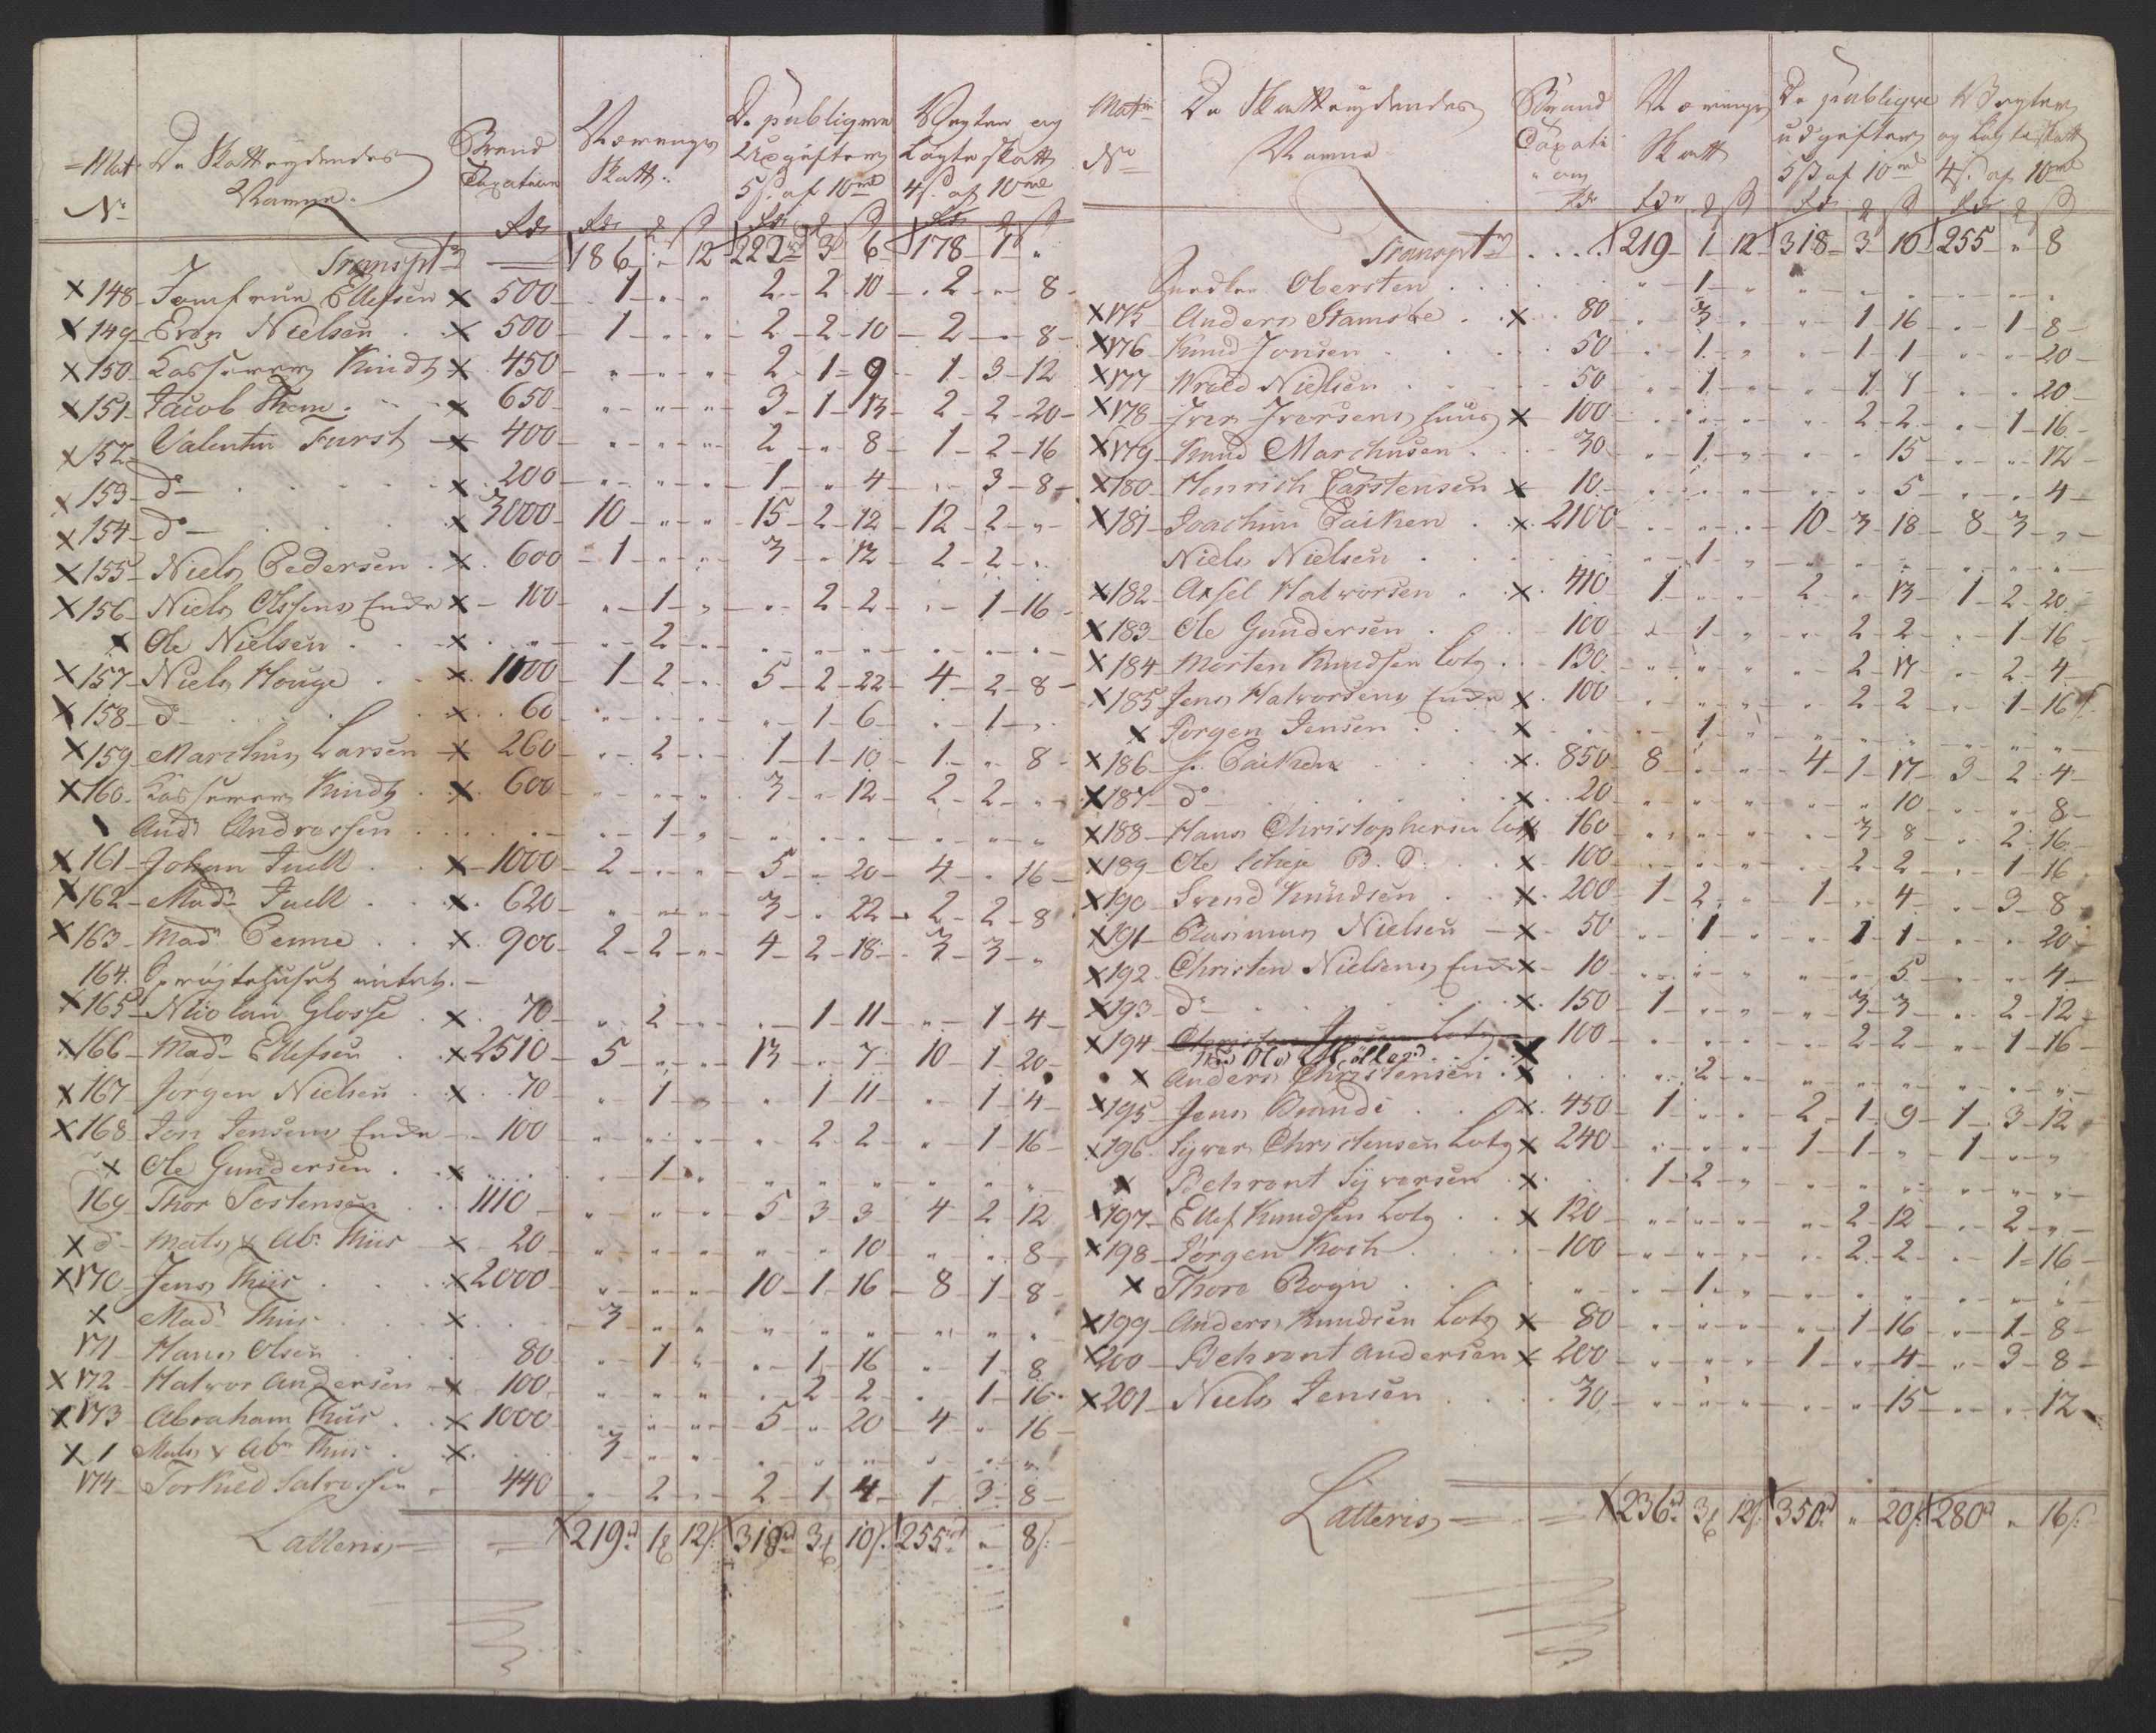 Mat: De Skatteydendes Brand Nærings De publiqve Vegter og
N° Navne. Taxation Skatt: Udgifter Løgte Skatt
5 ß. af 10 rd 4 ß. af 10 rd
Rdr Rdr
Transpt 186 " 12 222 3 6 178 1 "
X 148 Jomfrue Ellefsen X 500 1 " " 2 2 10 2 " 8
X 149 Even Nielsen X 500 1 " " 2 2 10 2 " 8
X 150 Kasserer Kindt X 450 " " " 2 1 9 1 3 12
X 151 Jacob Them X 650 " " " 3 1 13 2 2 20
X 152 Valentin Furst X 400 " " " 2 " 8 1 2 16
X 153 d° X 200 " " " 1 " 4 " 3 8
X 154 d° X 3000 10 " " 15 2 12 12 2 "
X 155 Niels Pedersen X 600 1 " " 3 " 12 2 2 "
X 156 Niels Olssens Enke X 100 " 1 " " 2 2 " 1 16
X Ole Nielsen X " " 2 " " " " " " "
X 157 Niels Houge X 1100 1 2 " 5 2 22 4 2 8
X 158 d° X 60 " " " " 1 6 " 1 "
X 159 Marchus Larsen X 260 " 2 " 1 1 10 1 " 8
X 160 Kasserer Kindt X 600 " " " 3 " 12 2 2 "
And: Andrassen " " 1 " " " " " " "
X 161 Johan Juell X 1000 2 " " 5 " 20 4 " 16
X 162 Mad: Juell X 620 " " " 3 " 22 2 2 8
X 163 Mad: Penne X 900 2 2 " 4 2 18 3 3 "
164. Sprøjtehuset intet.
X 165 Nicolai Glosse X 70 " 2 " " 1 11 " 1 4
X 166 Mad: Ellefsen X 2510 5 " " 13 " 7 10 1 20
X 167 Jørgen Nielsen X 70 " 1 " " 1 11 " 1 4
X 168 Jon Jensens Enke 100 " " " " 2 2 " 1 16
X Ole Gundersen X " " 1 " " " " " " "
169 Thor Tostensen 1110 " " " 5 3 3 4 2 12
X d° Mats & Ab: Thiis X 20 " " " " " 10 " " 8
X 170 Jens Thiis X 2000 " " " 10 1 16 8 1 8
X Mad: Thiis X 3 " " " " " " " "
171 Hans Olsen 80 " 1 " " 1 16 " 1 8
X 172 Halvor Andersen X 100 " " " " 2 2 " 1 16
X 173 Abraham Thiis X 1000 " " " 5 " 20 4 " 16
X 1 Mats & Ab: Thiis X 3 " " " " " " " "
174 Torkied Salvessen 440 " 2 " 2 1 4 1 3 8
Latteris X 219 rd 1 12 ß. 318 rd 3 10 ß. 255 rd " 8 ß.
Matr De Skatteydendes Brand Nærings De publiqve Vegter
N° Navne Taxati Skatt udgifter og Løgte Skatt
on 5 ß af 10 rd 4 ß. af 10 rd
Rdr Rdr
Transpt 219 1 12 318 3 10 255 " 8
Snedker Obersten " 1 " " " " " " "
X 175 Anders Stamsøe X 80 " 3 " " 1 16 " 1 8
X 176 Knud Jonsen 50 " 1 " " 1 1 " " 20
X 177 Wraad Nielsen 50 " 1 " " 1 1 " " 20
X 178 Iver Iversens huus X 100 " " " " 2 2 " 1 16
X 179 Knud Marchusen 30 " 1 " " " 15 " " 12
X 180 Henrich Carstensen X 10 " " " " " 5 " " 4
X 181 Joachim Paiken X 2100 " " " 10 3 18 8 3 "
Niels Nielsen " 1 " " " " " " "
X 182 Axsel Halvorsen X 410 1 " " 2 " 13 1 2 20
X 183 Ole Gundersen 100 " 1 " " 2 2 " 1 16
X 184 Morten Knudsen Lots 130 " " " " 2 17 " 2 4
X 185 Jens Halvorsens Enke X 100 " " " " 2 2 " 1 16
X Jørgen Jensen X " 1 " " " " " " "
X 186 J. Paiken X 850 8 " " 4 1 17 3 2 4
X 187 d° X 20 " " " " " 10 " " 8
X 188 Hans Christophersen Lots X 160 " " " " 3 8 " 2 16
X 189 Ole Scheje B. S. X 100 " " " " 2 2 " 1 16
X 190 Svend Knudsen X 200 1 2 " 1 " 4 " 3 8
X 191 Rasmus Nielsen X 50 " 1 " " 1 1 " " 20
X 192 Christen Nielsens Enke X 10 " " " " " 5 " " 4
X 193 d° X 150 1 " " " 3 3 " 2 12
X 194 Christen Jensen Lots 100 " " " " 2 2 " 1 16
X Anders Christensen X " 2 " " " " " " "
X 195 Jens Brandi X 450 1 " " 2 1 9 1 3 12
X 196 Syver Christensen Lots X 240 " " " 1 1 " 1 " "
X Behrent Syversen X 1 2 " " " " " " "
X 197 Ellef Knudsen Lots X 120 " " " " 2 12 " 2 "
X 198 Jørgen Koch 100 " " " " 2 2 " 1 16
X Thore Bogn " 1 " " " " " " "
X 199 Anders Knudsen Lots X 80 " " " " 1 16 " 1 8
X 200 Behrent Andersen X 200 " " " 1 " 4 " 3 8
X 201 Niels Jensen 30 " " " " " 15 " " 12
Latteris X 236 rd 3 12 ß. 350 rd " 20 ß. 280 rd " 16 ß.